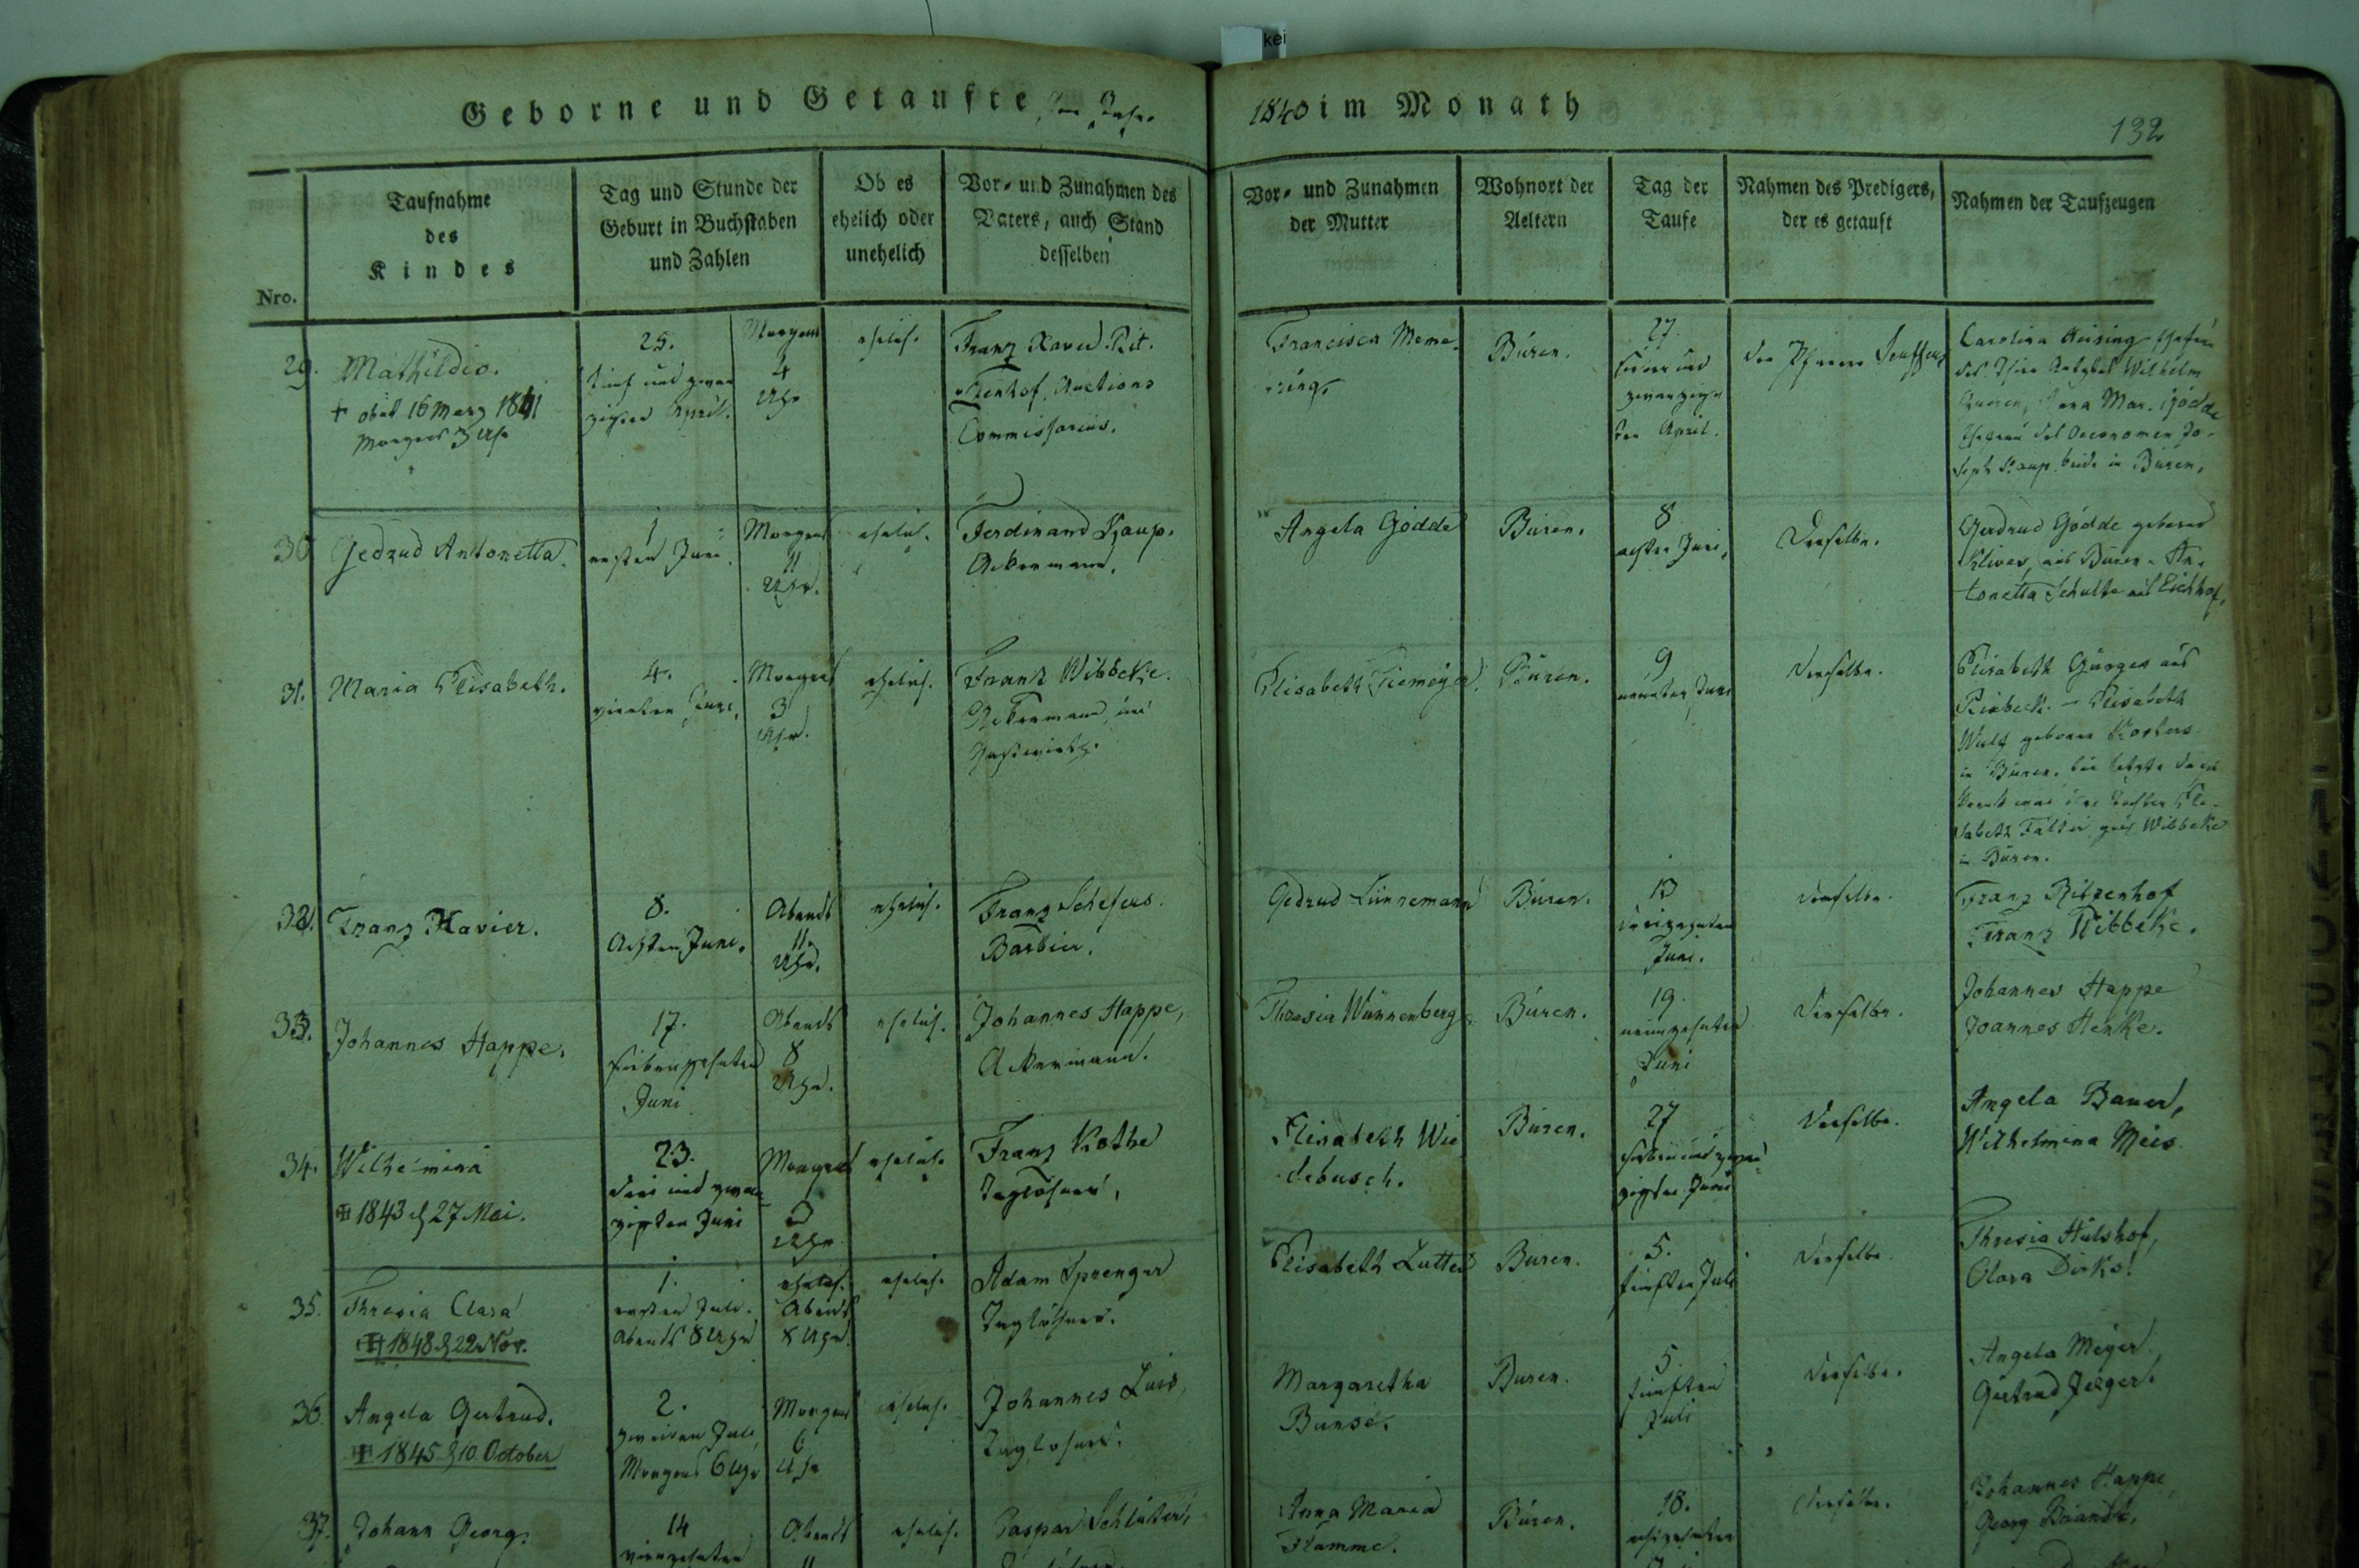 kei
Geborne und Getaufte im Jahr
1840 im Monath
132
Nro.
Taufnahme
des
Kindes
Tag und Stunde der
Geburt in Buchstaben
und Zahlen
Ob es
ehelich oder
unehelich
Vor- und Zunahmen des
Vaters, auch Stand
desselben
Vor- und Zunahmen
der Mutter
Wohnort der
Aeltern
Tag der
Taufe
Nahmen des Predigers,
der es getauft
Nahmen der Taufzeugen
29.
Mathildis.
+ obiit 16 März 1841
Morgens 3 Uhr
25.
fünf und zwan
zigsten April.
Morgens
4
Uhr
ehelich.
Franz Xaver Rit-
zenhof, Auctions
Commissarius.
Francisca Meme-
ring.
Büren.
27.
sieben und
zwanzig
ten April.
der Pfarrer
Carolina
Wilhelm
Mar. Gödde
Ehefrau des Oeconomen Jo-
seph Kaup beide in Büren.
30
Gedrud Antonetta.
1
ersten Juni.
Morgens
11
Uhr.
ehelich.
Ferdinand Kaup.
Ackermann.
Angela Gödde
Büren.
8
achten Juni.
Derselbe.
Gerdrud Gödde geborne
aus Büren - An-
tonetta Schulte aus Eichhof.
31.
Maria Elisabeth.
4.
vierten Juni.
Morgens
3
Uhr.
ehelich.
Franz Wibbeke.
Ackermann und
Gastwirth.
Elisabeth Tiemeyer.
Büren.
9
neunten Juni
derselbe.
Elisabeth Görges aus
Elisabeth
geborne Kosters
in Büren.
Tochter Eli-
sabeth Wibbeke
in Büren.
32.
Franz Xavier.
8.
Achten Juni.
Abends
11.
Uhr.
ehelich.
Franz Schefers.
Barbier.
Gedrud Lünnemann
Büren.
13
dreizehnten
Juni.
derselbe.
Franz Ritzenhof
Franz Wibbeke.
33.
Johannes Happe.
17.
siebenzehnten
Juni
Abends
8
Uhr.
ehelich.
Johannes Happe,
Ackermann.
Theresia Wünnenberg
Büren.
19.
neunzehnten
Juni
Derselbe.
Johannes Happe
Joannes Henke.
34.
Wilhelmina
1843 d 27 Mai.
23.
drei und zwan
zigsten Juni
Morgens
3
Uhr
ehelich.
Franz Kothe
Taglöhner,
Elisabeth Wie
debusch.
Büren.
27
sieben und zwan
zigsten Juni
Derselbe.
Angela Bauer,
Wilhelmina Meis
35.
Thresia Clara
1848 d 22 Nov.
1.
ersten Juli.
Abends 8 Uhr
ehelich.
Abends
8 Uhr.
ehelich.
Adam Sprenger
Taglöhner.
Elisabeth Lutter
Büren.
5.
fünften Juli
Derselbe.
Thresia Hülshof,
Clara Dirks.
36.
Angela Gertrud.
1845 d 10 October
2.
zweiten Juli
Morgens 6 Uhr
Morgens
6
Uhr
ehelich.
Johannes Luis,
Taglöhner.
Margaretha
Bunse.
Büren.
5.
fünften
Juli
derselbe.
Angela Meyer.
Gertrud Jeeger.
37.
Johann Georg.
14
vierzehnten
Abends
11
ehelich.
Caspar Schlüter,
Anna Maria
Flamme.
Büren.
18.
achtzehnten
derselbe.
Johannes Happe
Georg Brandt.